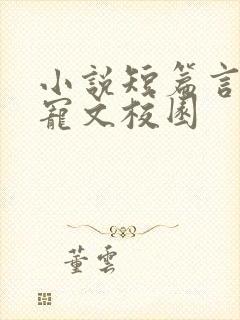 小説短篇言
寵文校園
董雲